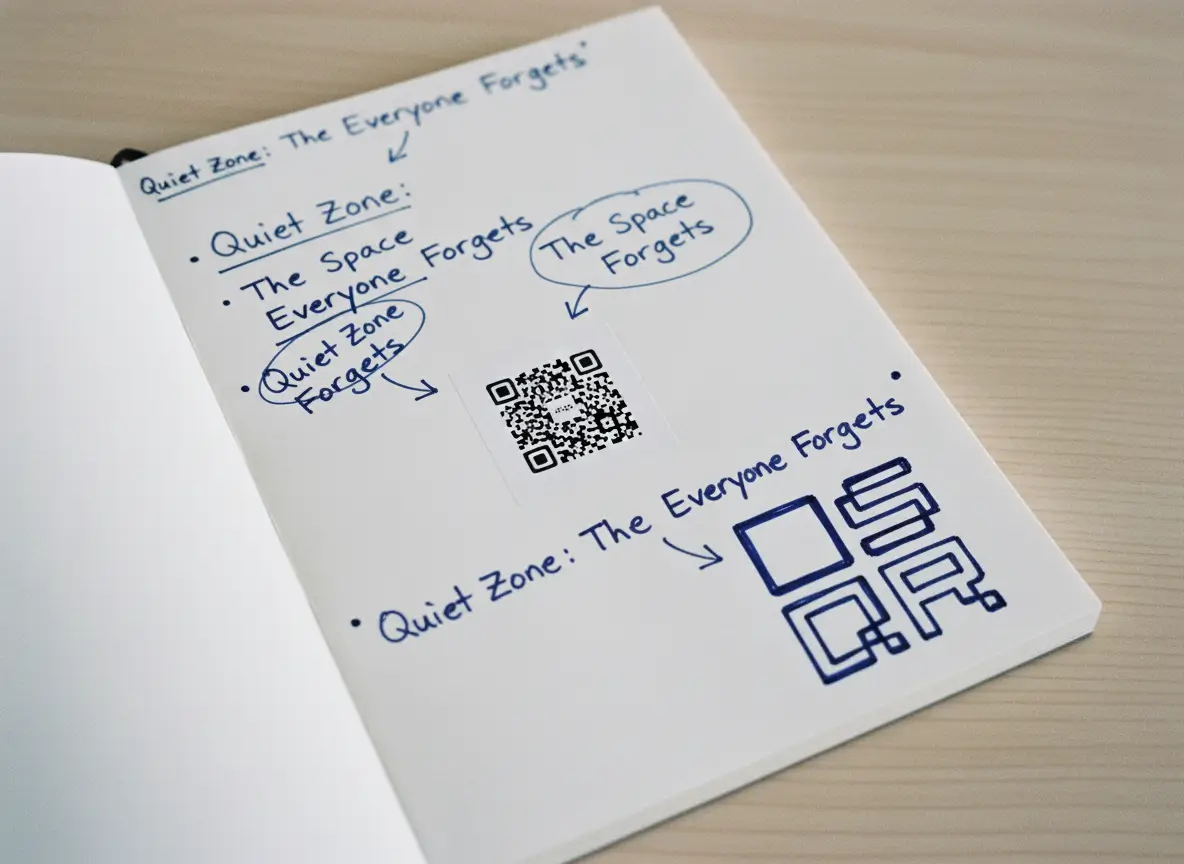 Quiet Zone: The Everyone Forgets
Quiet Zone:
The Space
Everyone Forgets
Quiet Zone
Forgets
The Space
Forgets
Quiet Zone: The Everyone Forgets
S
QR